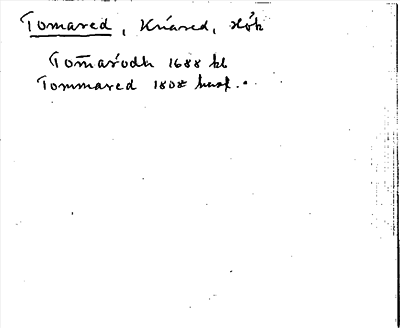 Tomared, Knäred, Hök
Tom̅arödh 1688 kb
Tommared 1808 husf.